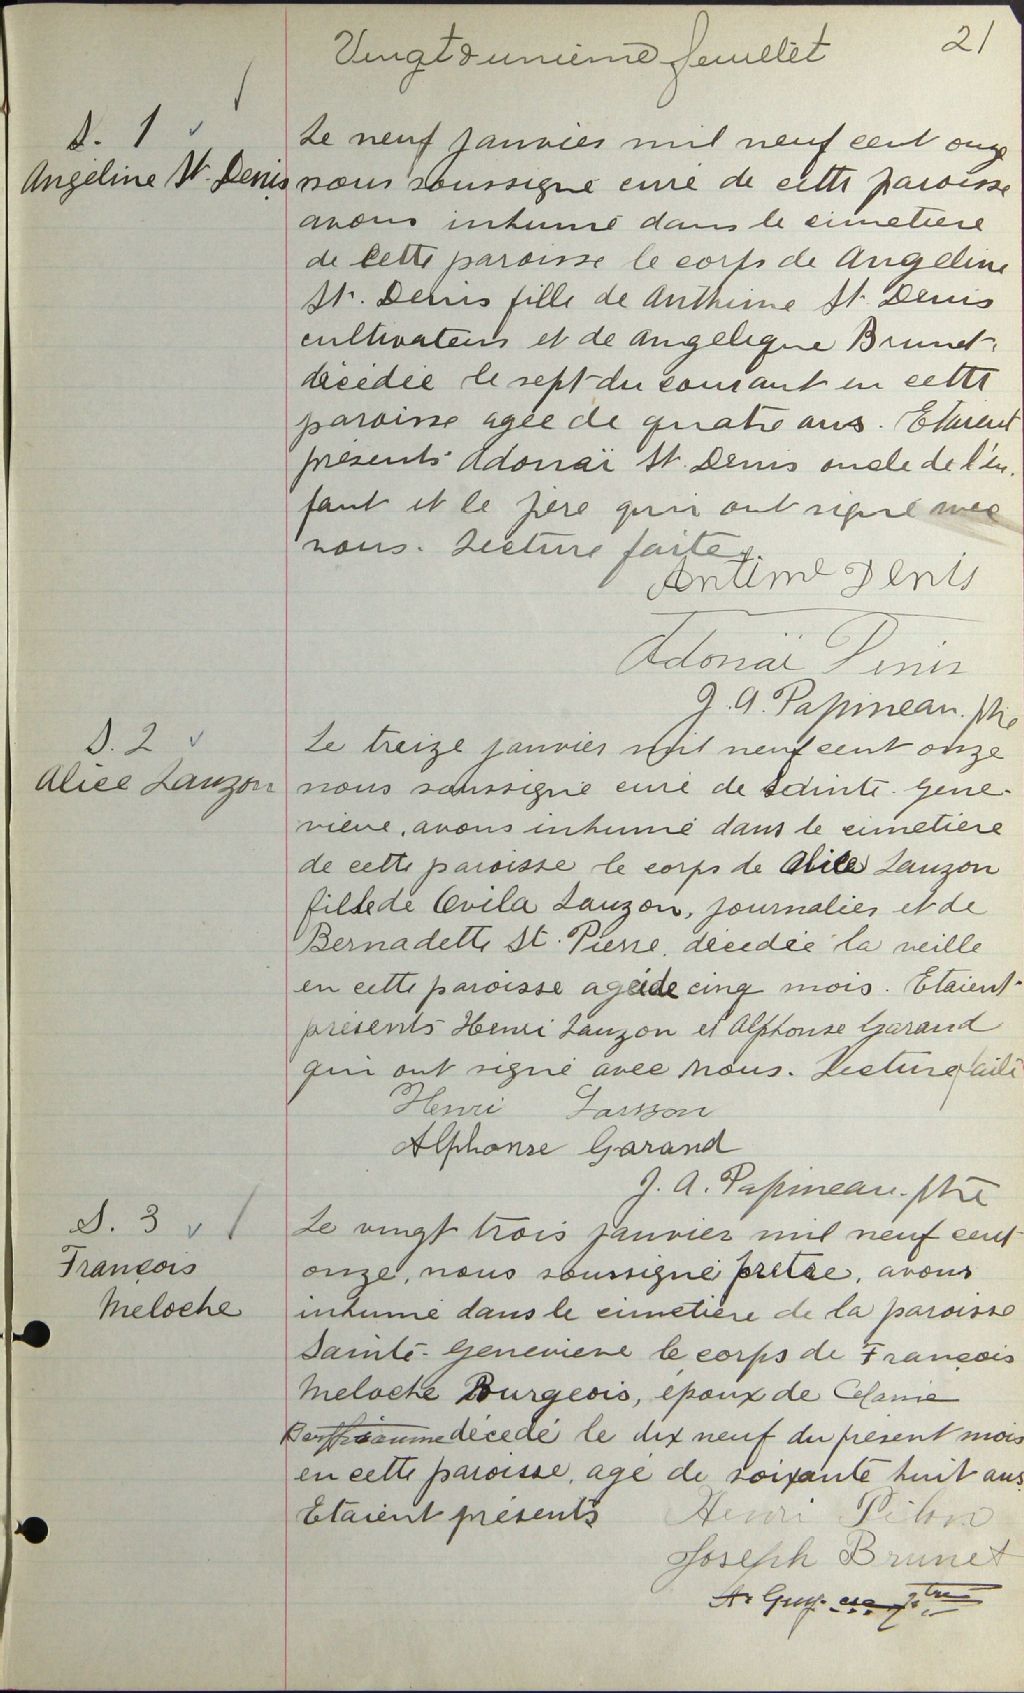 Vingt & unième feuillet 21
S. 1
Angéline St. Denis
Le neuf janvier mil neuf cent onze
nous soussigné curé de cette paroisse
avons inhumé dans le cimetière
de cette paroisse le corps de Angeline
St. Denis fille de Anthime St. Denis
cultivateur et de Angelique Brunet
décédée le sept du courant en cette
paroisse agée de quatre ans. Etaient
présents Adonaï St. Denis oncle de l'en-
fant et le père qui ont signé avec
nous. Lecture faite.
Antime Denis
Adonaï Denis
J. A. Papineau. ptre
S. 2
Alice Lauzon
Le treize janvier mil neuf cent onze
nous soussigné curé de Sainte Gene-
viève, avons inhumé dans le cimetière
de cette paroisse le corps de Alice Lauzon
fille de Ovila Lauzon, journalier et de
Bernadette St. Pierre, décédée la veille
en cette paroisse agée de cinq mois. Etaient
présents Henri Lauzon et Alphonse Garand
qui ont signé avec nous. Lecture faite
Henri Lauson
Alphonse Garand
J. A. Papineau. ptre
S. 3
François
Meloche
Le vingt trois janvier mil neuf cent
onze, nous soussigné pretre, avons
inhumé dans le cimetière de la paroisse
Sainte-Geneviève le corps de François
Meloche Bourgeois, époux de
décédé le dix neuf du présent mois
en cette paroisse, agé de soixante huit ans
Etaient présents Henri Pilon
Joseph Brunet